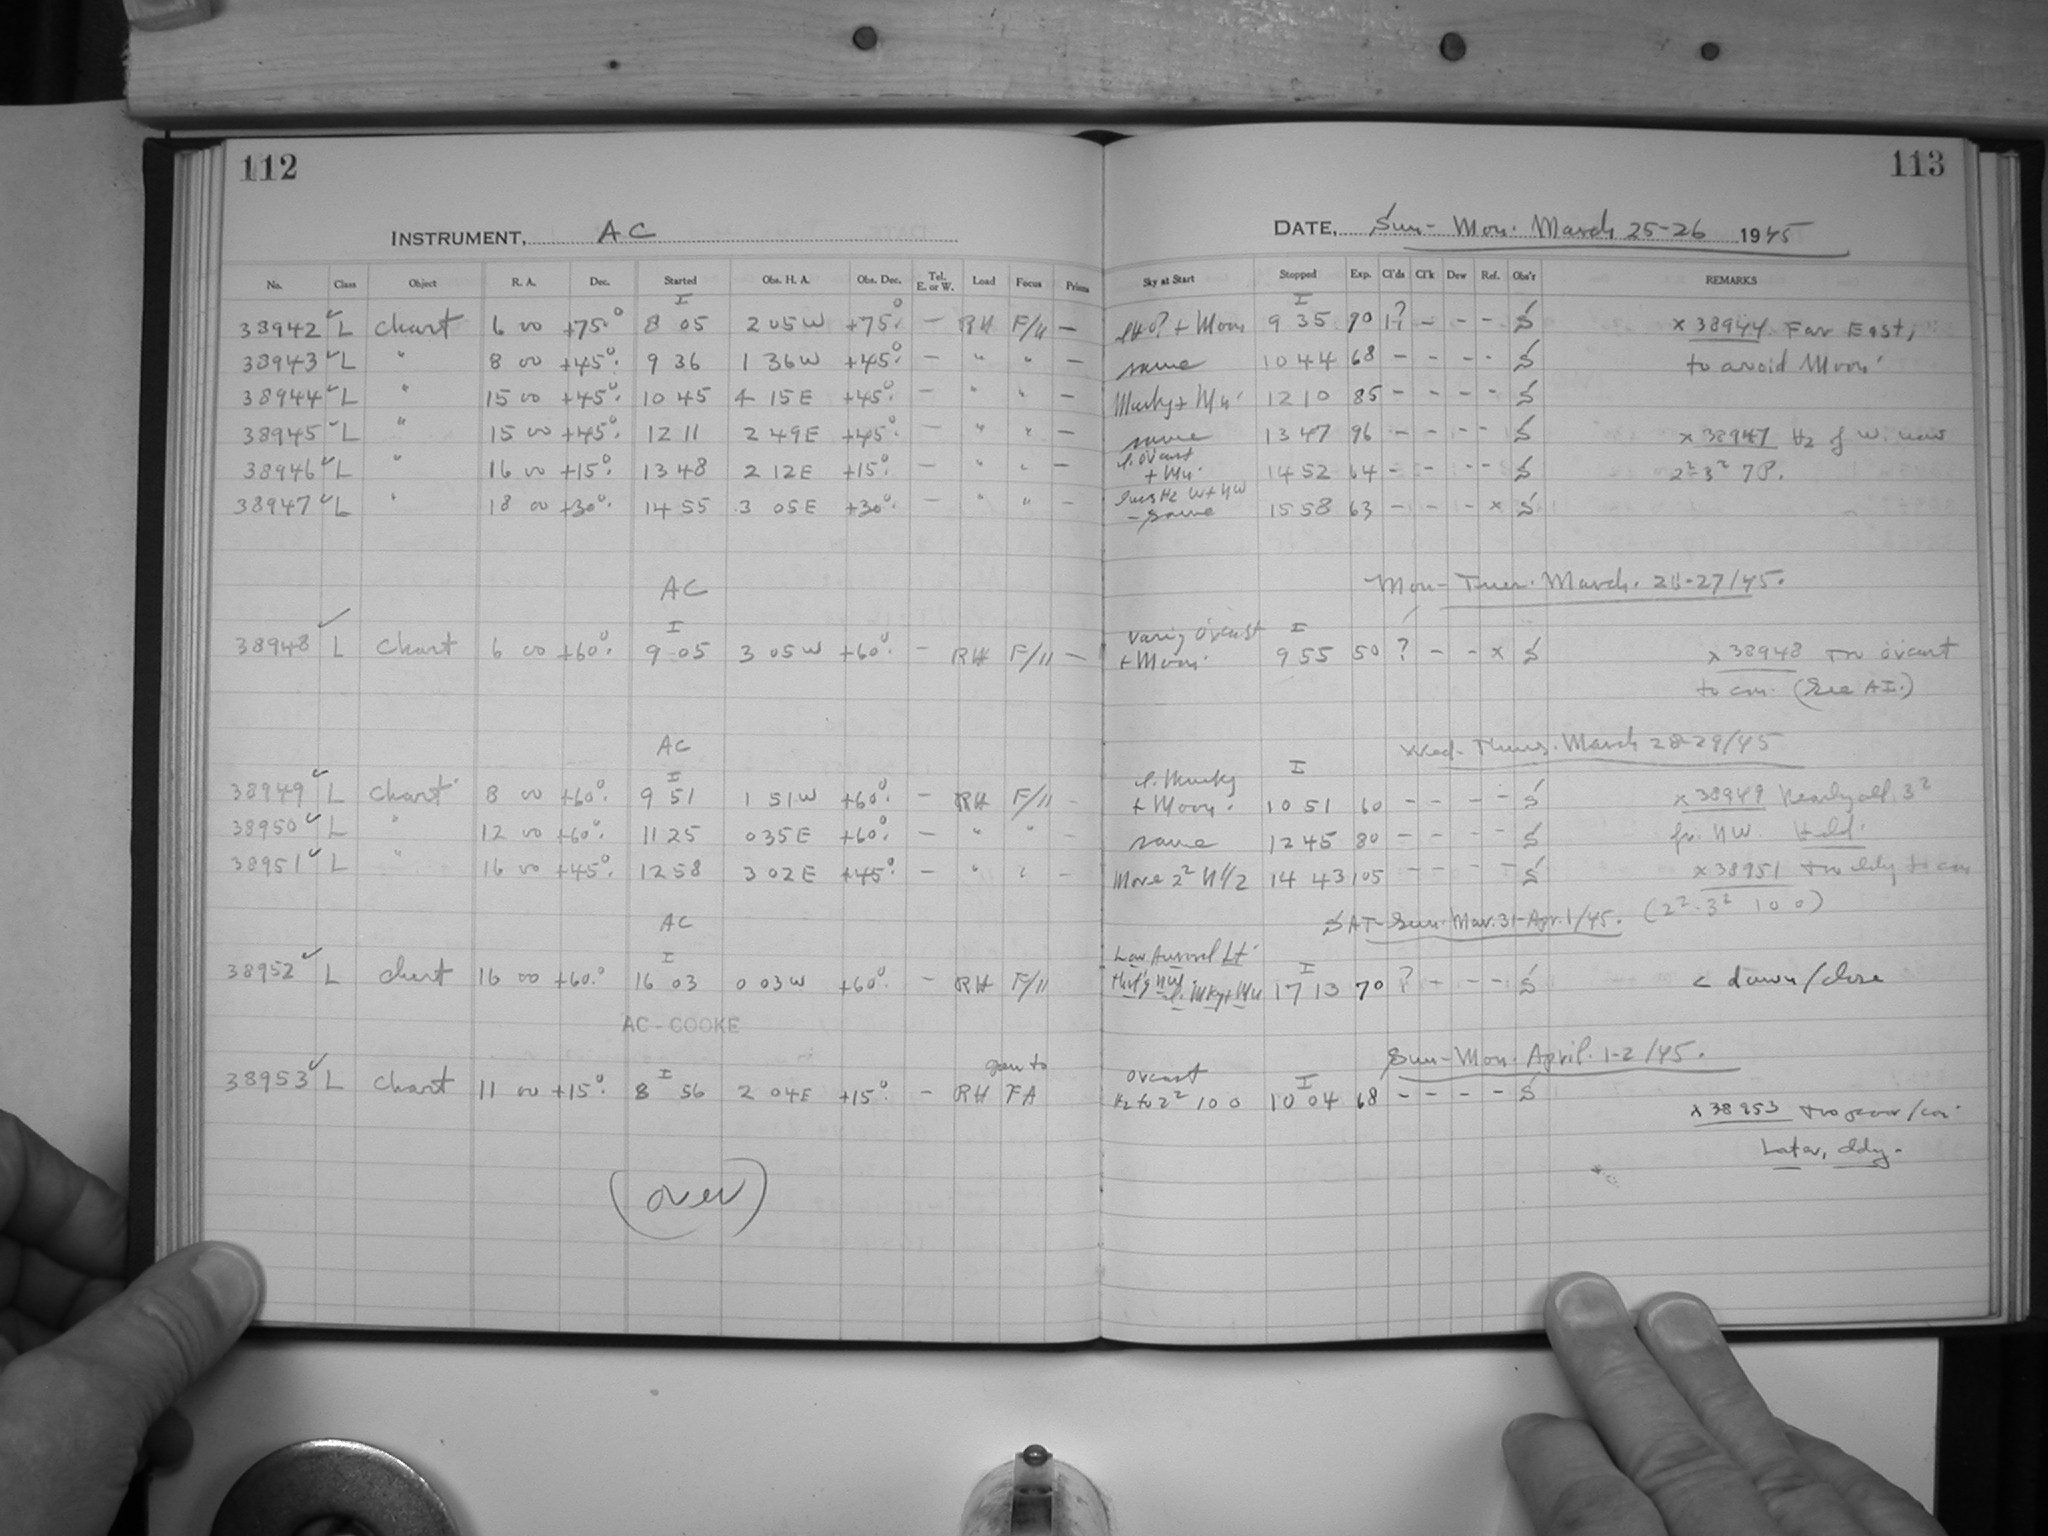 112
113
INSTRUMENT, AC
DATE, Sun- Mon. March 25-26 1945
No. Class Object R. A. Dec. Started Obs. H. A. Obs. Dec. Tel. E. or W. Load Focus Prism Sky at Start Stopped Exp. Cl'ds Cl'k Dew Ref. Obs'r REMARKS
I o I
38942 ✓ L Chart 6 00 +75° 8 05 2 05 W +75° - RH F/11 - + Moon 9 35 90 1? - - - S x 38944. Far East,
38943 ✓ L " 8 00 +45° 9 36 1 36 W +45° - " " - same 10 44 68 - - - - S to avoid Moon
38944 ✓ L " 15 00 +45° 10 45 4 15 E +45° - " " - Murky + Mn 12 10 85 - - - - S
38945 ✓ L " 15 00 +45° 12 11 2 49 E +45° - " " - same 13 47 96 - - - - S x 38947 Hz of W. now
38946 ✓ L " 16 00 +15° 13 48 2 12 E +15° - " " - + Mn 14 52 64 - - - - S 2² 3² 7P.
38947 ✓ L " 18 00 +30° 14 55 3 05 E +30° - " " - Hz W + NW - same 15 58 63 - - - x S
AC Mon- Tues. March. 26-27/45.
38948 ✓ L Chart 6 00 +60° 9 05 3 05 W +60° - RH F/11 - Vari'g ovcast + Moon 9 55 50 ? - - x S x 38948 Tro ovcast
to con. (See AI.)
AC Wed- Thurs. March 28-29/45
38949 ✓ L Chart 8 00 +60° 9 51 1 51 W +60° - RH F/11 - Murky + Moon 10 51 60 - - - - S x 38949 Nearly all 3²
38950 ✓ L " 12 00 +60° 11 25 0 35 E +60° - " " - same 12 45 80 - - - - S fr. NW. Held.
38951 ✓ L " 16 00 +45° 12 58 3 02 E +45° - " " - More 2² N 1/2 14 43 105 - - - - S x 38951 Tro cldy to con
(2² - 3² 10 0)
AC SAT- Sun. Mar. 31- Apr. 1/45.
38952 ✓ L Chart 16 00 +60° 16 03 0 03 W +60° - RH F/11 Low Auroral Lt NW 17 13 70 ? - - - S < dawn/close
AC - COOKE Sun- Mon. April. 1-2/45.
38953 ✓ L Chart 11 00 +15° 8 56 2 04 E +15° - RH FA ovcast Hz to 2² 10 0 10 04 68 - - - - S
x 38953 Tro poor/con
Later, cldy.
(over)